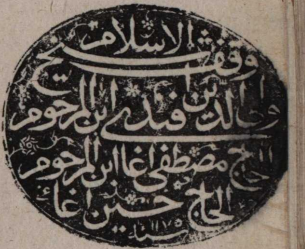 وقف شيخ الاسلام
ولي الدين افندى ابن المرحوم
الحاج مصطفى اغا ابن المرحوم
الحاج حسين اغا
سنة ١١٧٥